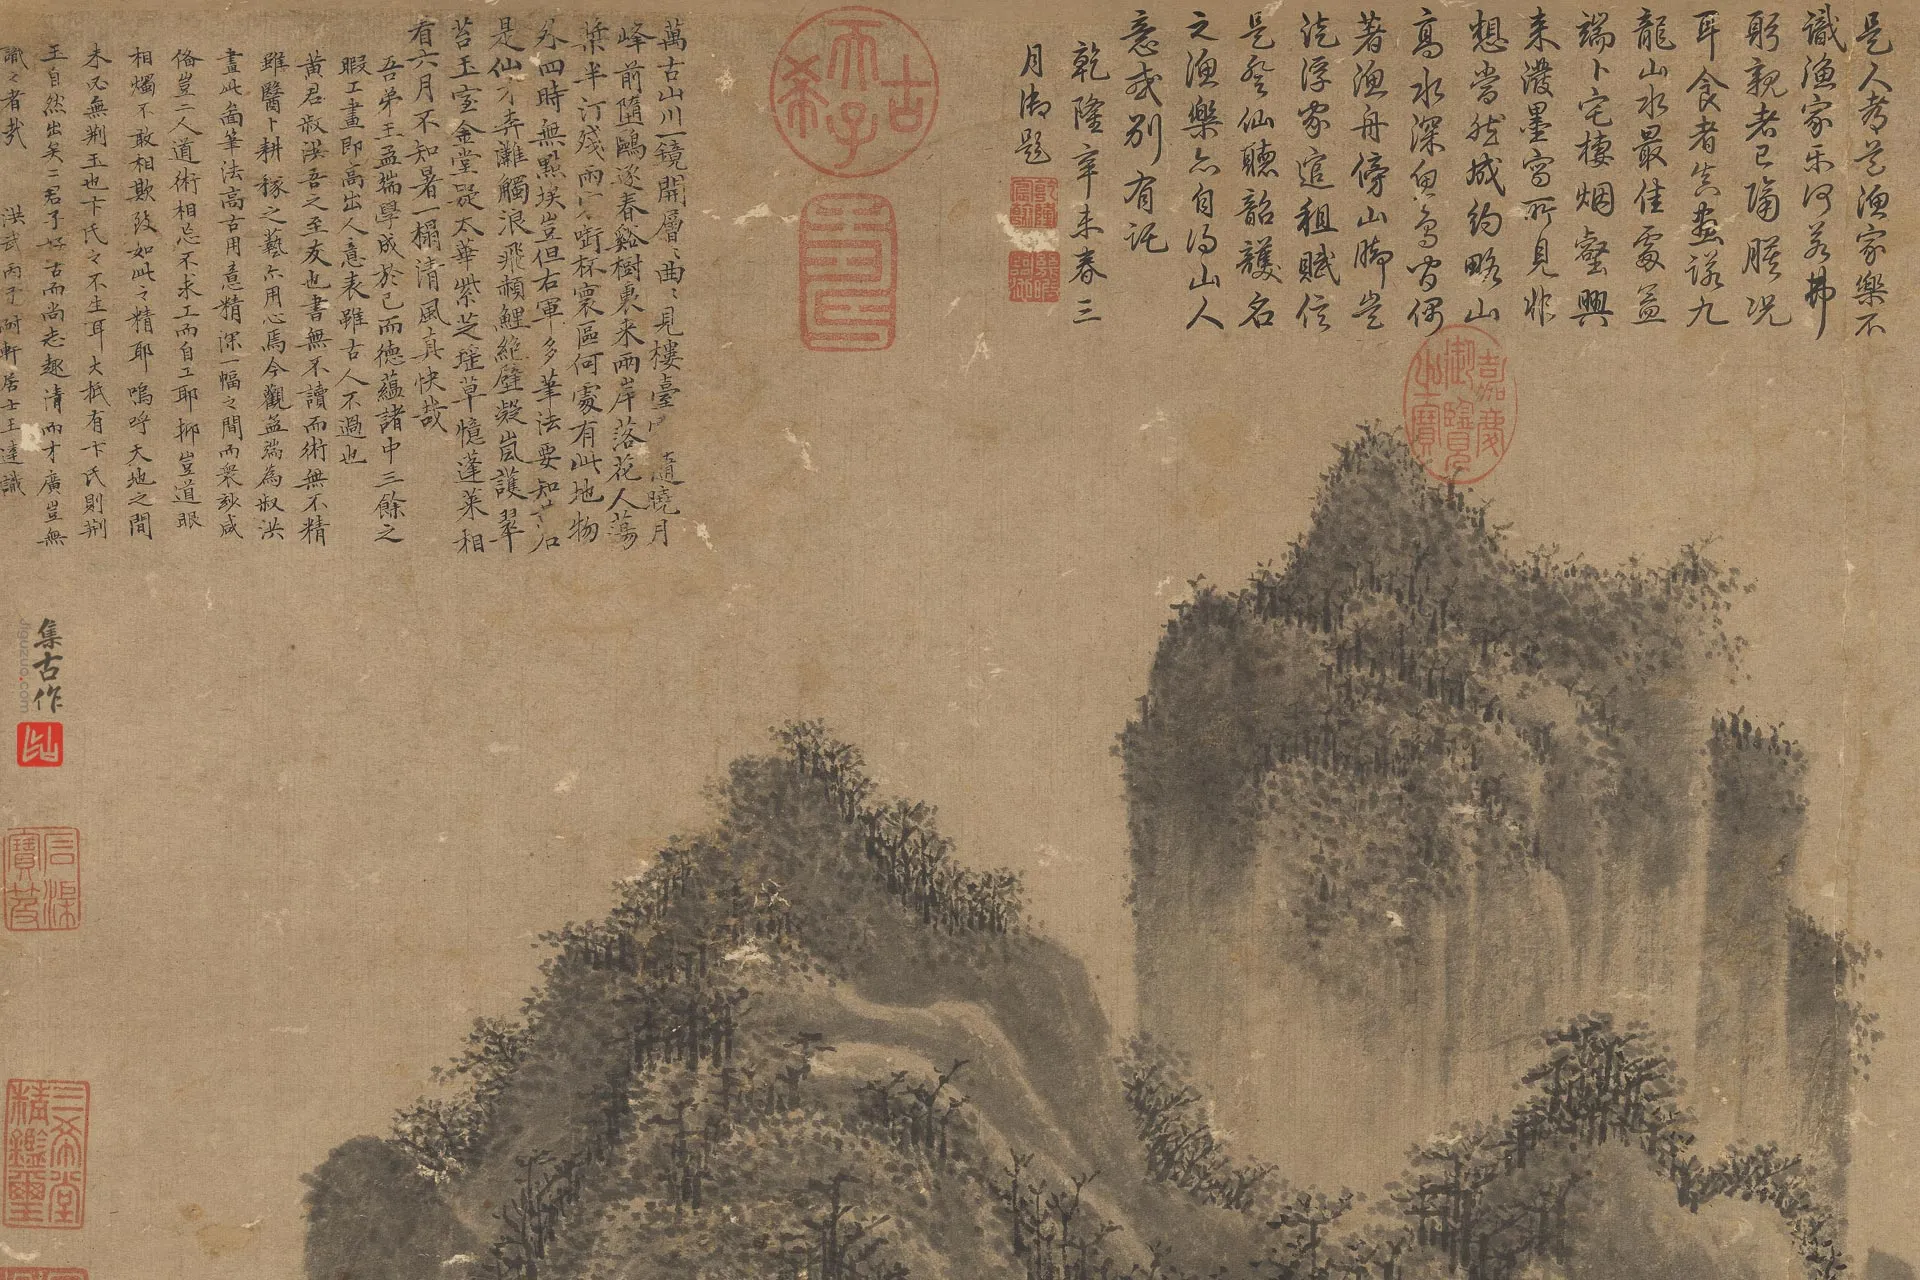 是人考是漁家樂不
識漁家乐何義弗
躬親者已隔膜況
耳食者畫九
龍山水最佳處孟
端卜宅棲烟壑興
来潑墨寫所見非
想當然成約略山
高水深魚鳥偶
著漁舟傍山脚豈
浮家追租賦
是登仙聽韶護名
之漁樂亦自得山人
意或別有託
乾隆辛未春三
月御題
乾隆宸翰
古希天子
壽
嘉慶御覽之寶
萬古山川一鏡開層〻曲〻見樓臺隨曉月
峰前隨鷗逐春谿樹裏来兩岸落花人蕩
槳半汀殘雨銜杯寰區何處有此地物
外四時無點埃豈但右軍多筆法要知石
是仙才奔灘觸浪飛赬鯉絕壁凝嵐護翠
苔玉室金堂疑太華紫芝瑤草憶蓬萊相
看六月不知暑一榻清風真快哉
吾弟王孟端學成於己而德蘊諸中三餘之
暇工畫即高出人意表雖古人不過也
黄君叔洪吾之至友也書無不讀而術無不精
雖醫卜耕稼之藝亦用心焉今觀孟端為叔洪
畫此啚筆法高古用意精深一幅之間而衆玅咸
俻豈二人道術相忘不求工而自工耶抑豈道眼
相燭不敢相欺致如此之精耶嗚呼天地之間
未必無荆玉也卞氏之不生耳大抵有卞氏則荆
玉自然出矣二君子好古而尚志趣清而才廣豈無
識之者哉 洪武丙子耐軒居士王達識
集古作
jiguzuo.com
三希堂精鑑璽